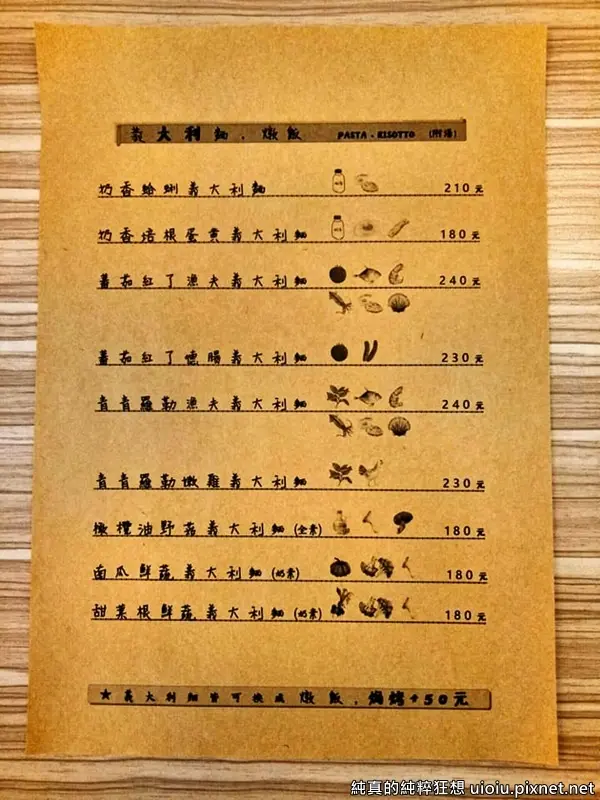 義大利麵．燉飯 PASTA．RISOTTO (附湯)
奶香蛤蜊義大利麵 210元
奶香培根蛋黃義大利麵 180元
蕃茄紅了漁夫義大利麵 240元
蕃茄紅了德腸義大利麵 230元
青青羅勒漁夫義大利麵 240元
青青羅勒嫩雞義大利麵 230元
橄欖油野菇義大利麵(全素) 180元
南瓜鮮蔬義大利麵(奶素) 180元
甜菜根鮮蔬義大利麵(奶素) 180元
★義大利麵皆可換成燉飯，焗烤+50元
純真的純粹狂想 uioiu.pixnet.net